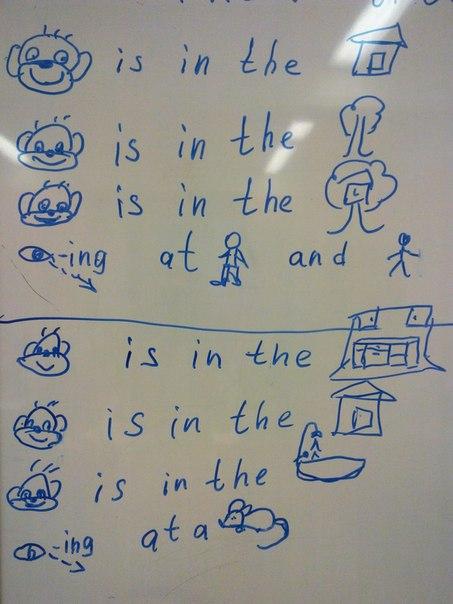 is in the
is in the
is in the
-ing at and
is in the
is in the
is in the
-ing at a